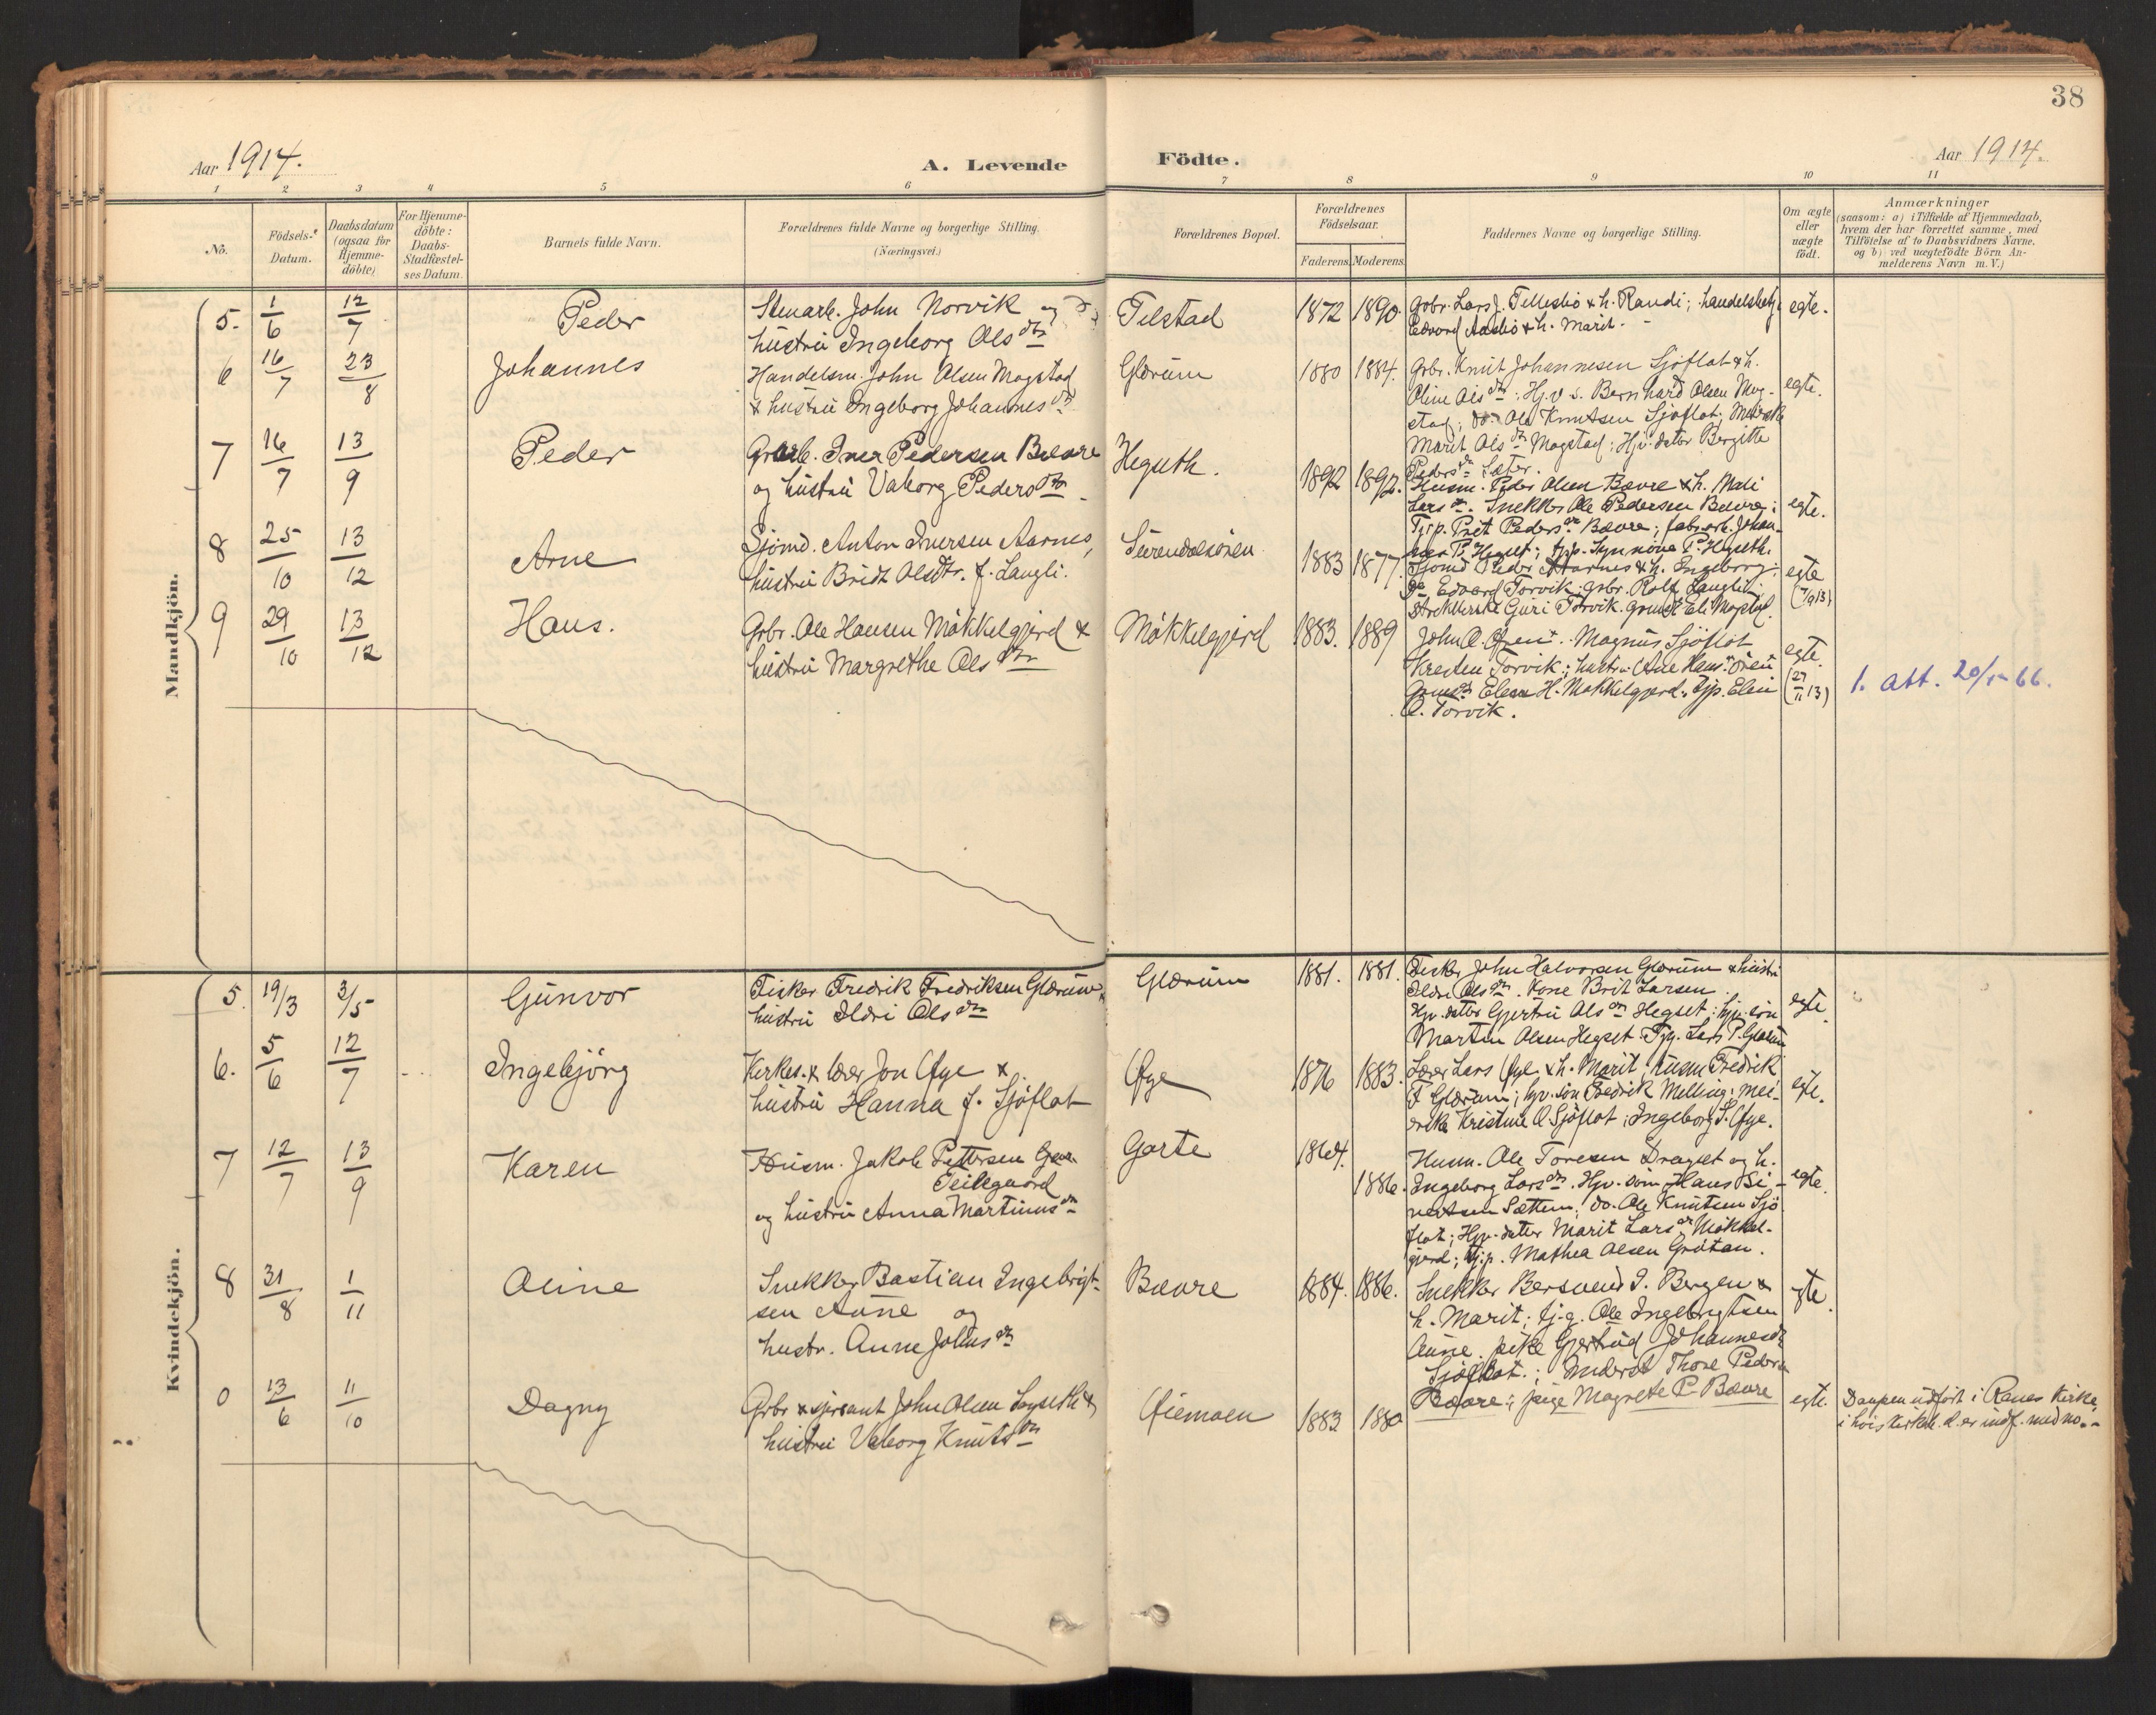 38
Aar 1914.
A. Levende
Födte.
Aar 1914.
1 2 3 4 5 6 7 8 9 10 11
No.
Födsels-
Datum.
Daabsdatum
(ogsaa for
Hjemme-
döbte)
For Hjemme-
döbte:
Daabs-
Stadfæstel-
ses Datum.
Barnets fulde Navn.
Forældrenes fulde Navne og borgerlige Stilling.
(Næringsvei.)
Forældrenes Bopæl.
Forældrenes
Födselsaar.
Faderens. Moderens.
Faddernes Navne og borgerlige Stilling.
Om ægte
eller
uægte
födt.
Anmærkninger
(saasom: a) i Tilfælde af Hjemmedaab,
hvem der har forrettet samme, med
Tilföielse af to Daabsvidners Navne,
og b) ved uægtefödte Börn An-
melderens Navn m.V.)
Mandkjön.
5. 1/6 12/7 Peder
Stenarb. John Norvik og
hustru Ingeborg Olsdtr
Telstad 1872 1890.
Gbr. Lars J. Tellesbö & h. Randi; handelsbetj.
Edvard Aasbö & h. Marit.
egte.
6 16/7 23/8 Johannes
Handelsm. John Olsen Mogstad
& hustru Ingeborg Johannesdtr
Glærum 1880 1884.
Gbr. Knut Johannesen Sjöflot & h.
Oline Olsdtr; Hj.v.s. Bernhard Olsen Mog-
stad; do. Ola Knutsen Sjöflot; Meierske
Marit Olsdtr Mogstad; Hjv. datter Bergitte
Pedersdtr Sæter.
egte.
7 16/7 13/9 Peder
Grarb. Iver Pedersen Bævre
og hustru Valborg Pedersdtr
Heguth. 1892 1892.
Husm. Peder Olsen Bævre & h. Mali
Larsdtr. Snekker Ole Pedersen Bævre;
Tjp. Brit Pedersdtr Bævre; fabr.arb. Johan-
nes P. Hegset; tjp. Synnöve P. Hegseth.
egte.
8 25/10 13/12 Arne
Sjömd. Anton Iversen Aarnes,
hustru Bridt Olsdtr. f. Langli.
Surendalsören 1883 1877.
Sjömd Peder Aarnes & h. Ingeborg;
do Edvard Torvik; gbr. Rolf Langli;
Strikkerske Guri Torvik. Eli Mogstad.
egte
(7/9 13)
9 29/10 13/12 Hans.
Gbr. Ole Hansen Mökkelgjerd &
hustru Margrethe Olsdtr
Mökkelgjerd 1883. 1889
John O. Magnus Sjöflot
Kresten Torvik; hustru Ane Ören
Elen H. Mökkelgjerd. tjp. Elen
O. Torvik.
egte.
(27/11 13)
1. att. 20/1-66.
Kvindekjön.
5. 19/3 3/5 Gunvor
Fisker Fredrik Fredriksen Glærum &
hustru Ildri Olsdtr
Glærum 1881. 1881.
Fisker John Halvorsen Glærum & hustru
Ildri Olsdtr. Kone Brit Larsen
Hjv. datter Gjertru Olsdtr Hegset; hjv. sön
Martin Olsen Hegset. Tjg. Lars P. Glærum
egte.
6. 5/6 12/7 Ingebjörg
Kirkes. & lærer Jon Öye &
hustru Hanna f. Sjöflot
Öye 1876 1883.
Lærer Lars Öye & h. Marit; husm Fredrik
F Glærum; hjv. sön Fredrik Melling; mei-
erske Kristine O Sjöflot; Ingeborg S. Öye.
egte.
7 12/7 13/9 Karen
Husm. Jakob Pettersen
Teilgaard
og hustru Anna Martinusdtr
Garte 1864. 1886.
Husm. Ole Toresen Dragset og h.
Ingeborg Larsdtr. Hjv. sön Hans Si-
vertsen Sættem; do. Ole Knutsen Sjö-
flot; Hjv. datter Marit Larsdtr Mökkel-
gjerd; tj.p. Mathea Olsen Grötan.
egte.
8 31/8 1/11 Oline
Snekker Bastian Ingebrigt-
sen Aune og
hustr. Anne Johnsdtr
Bævre 1884. 1886.
Snekker Bersvend I. Bergen &
h. Marit; tj.g. Ole Ingebrigtsen
Aune. pike Gjertrud Johannesdtr
Sjöflot.; Thore Peders
Bævre; pige Magrete P. Bævre
egte.
0 13/6 11/10 Dagny
Gbr & sjersant John Olsen Løseth &
hustru Valborg Knutsdtr
Öiemoen 1883 1880
egte.
Daapen utfört i Ranes kirke,
i hvis kirkeb. d. er indf. med no.